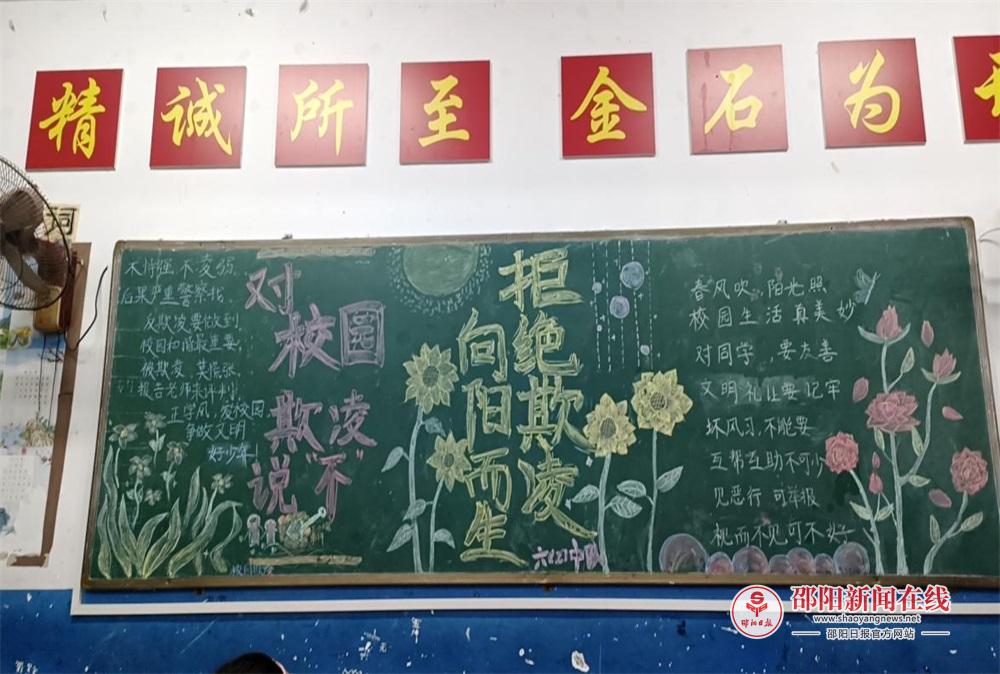 精诚所至
金石为
词
不恃强 不凌弱
后果严重警察找
反欺凌要做到
校园和谐最重要
被欺凌、莫慌张
报告老师来评判
正学风,爱校园
争做文明
好少年
对
校园
欺凌
说"不"
拒绝欺凌
向阳而生
六(2)中队
春风吹,阳光照
校园生活真美妙
对同学,要友善
文明礼让要记牢
坏风习,不能要
互帮互助不可少
见恶行 可举报
视而不见可不好
邵阳日报
邵阳新闻在线
www.shaoyangnews.net
邵阳日报官方网站